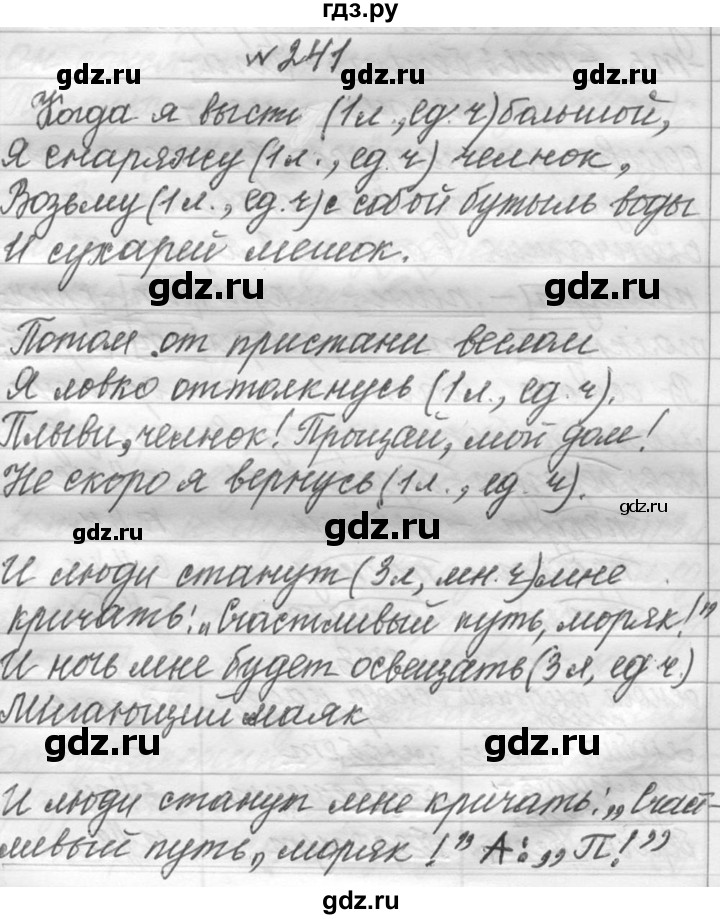 гдз.ру
№ 241
gdz.ru gdz.ru gdz.ru
Когда я высти (1л., ед. ч) большой,
Я снаряжу (1л., ед. ч) челнок,
Возьму (1л., ед. ч) с собой бутыль воды
И сухарей мешок.
gdz.ru gdz.ru
Потом от пристани веслом
Я ловко оттолкнусь (1л., ед. ч).
Плыви, челнок! Прощай, мой дом!
Не скоро я вернусь (1л., ед. ч).
gdz.ru gdz.ru gdz.ru
И люди станут (3л, мн. ч) мне
кричать: „Счастливый путь, моряк!”
И ночь мне будет освещать (3л, ед. ч.)
Мигающий маяк
gdz.ru gdz.ru
И люди станут мне кричать: „Счаст-
ливый путь, моряк!” А: „П!”
gdz.ru